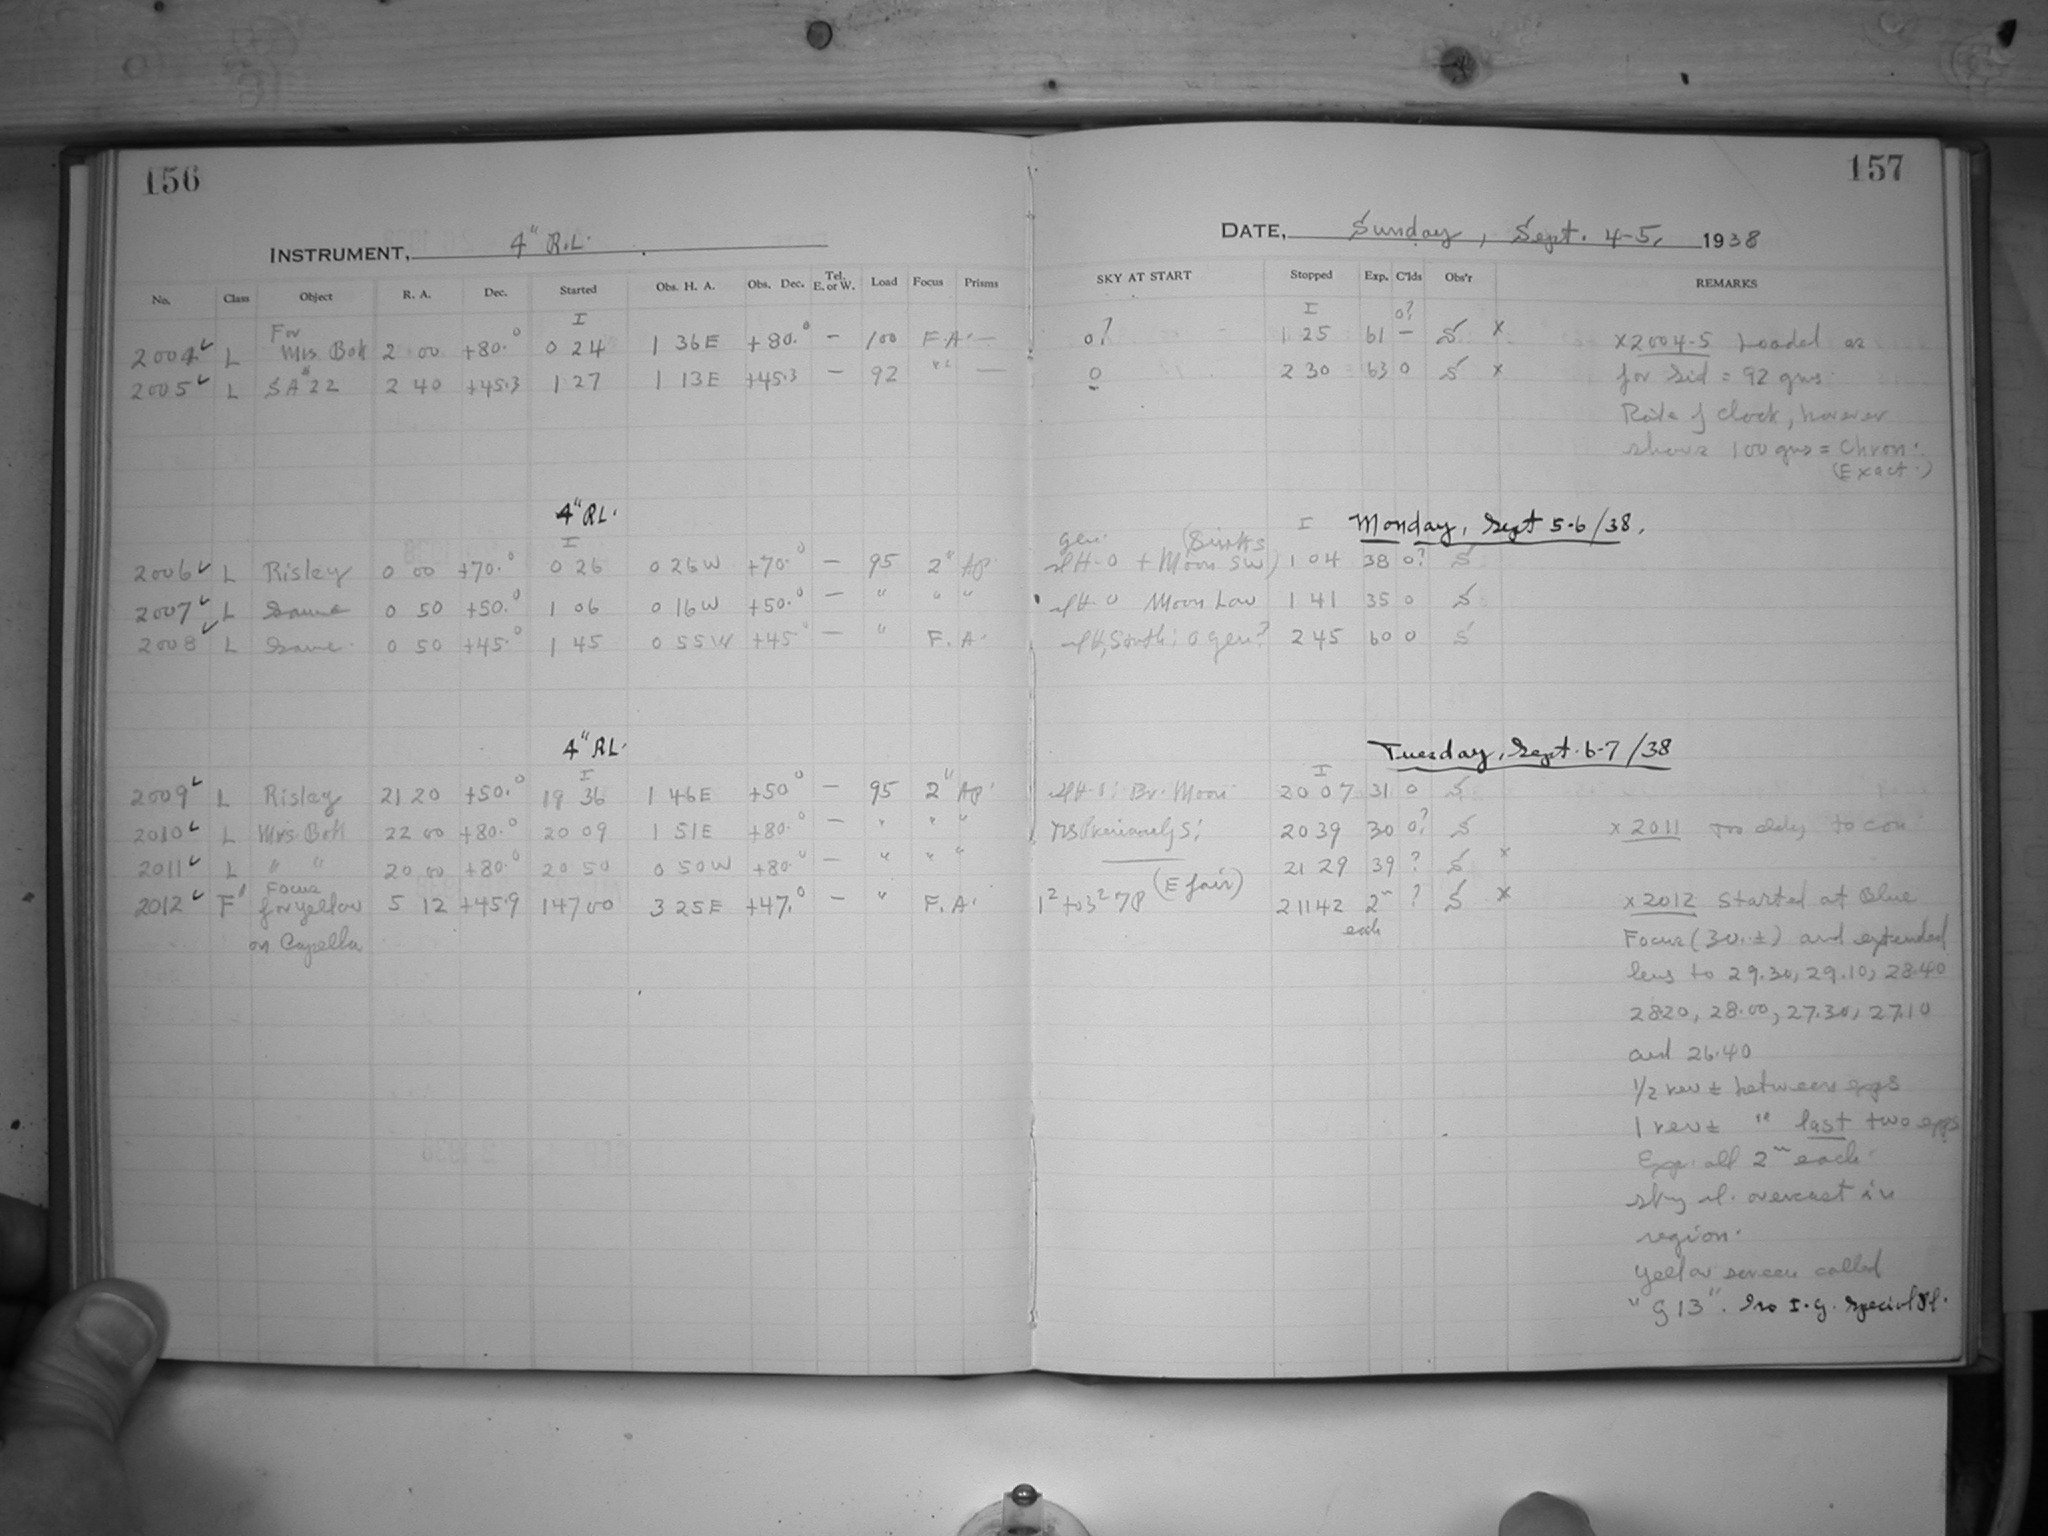 156
157
INSTRUMENT, 4" R.L.
DATE, Sunday, Sept. 4-5, 1938
No. Class Object R. A. Dec. Started Obs. H. A. Obs. Dec. Tel. E. or W. Load Focus Prisms SKY AT START Stopped Exp. C'lds Obs'r REMARKS
I I 0?
2004 L For Mrs. Bok 2 00 +80.° 0 24 1 36E +80.° — 100 F.A. — 0? 1 25 61 — S x x 2004-5 Loaded as
2005 L SA 22 2 40 +45.3 1 27 1 13E +45.3 — 92 " " — 0 2 30 63 0 S x for Sid = 92 gms.
Rate of clock, however
shows 100 gms = Chron.
(Exact.)
4" RL. Monday, Sept 5-6/38.
I I
2006 L Risley 0 00 +70.° 0 26 0 26W +70.° — 95 2" Ap. gen. + Moon SW) 1 04 38 0? S
2007 L Same 0 50 +50.° 1 06 0 16W +50.° — " " " Moon Low 1 41 35 0 S
2008 L Same. 0 50 +45.° 1 45 0 55W +45° — " F.A. South: 0 gen? 2 45 60 0 S
4" RL. Tuesday, Sept. 6-7/38
I I
2009 L Risley 21 20 +50.° 19 36 1 46E +50° — 95 2" Ap. Br. Moon 20 07 31 0 S
2010 L Mrs. Bok 22 00 +80.° 20 09 1 51E +80.° — " " " Previously S: 20 39 30 0? S x 2011 Too cldy to con
2011 L " " 20 00 +80.° 20 50 0 50W +80.° — " " " — 21 29 39 ? S x
2012 F' Focus for yellow on Capella 5 12 +45.9 1 47 00 3 25E +47.° — " F.A. (E fair) 2 11 42 2m each ? S x x 2012 Started at Blue
Focus (30.±) and extended
lens to 29.30, 29.10, 28.40
28.20, 28.00, 27.30, 27.10
and 26.40
1/2 rev ± between exps
1 rev ± " last two exps
Exp. all 2m each.
sky sl. overcast in
region.
Yellow screen called
"G 13". Iso I.G. Special Pl.